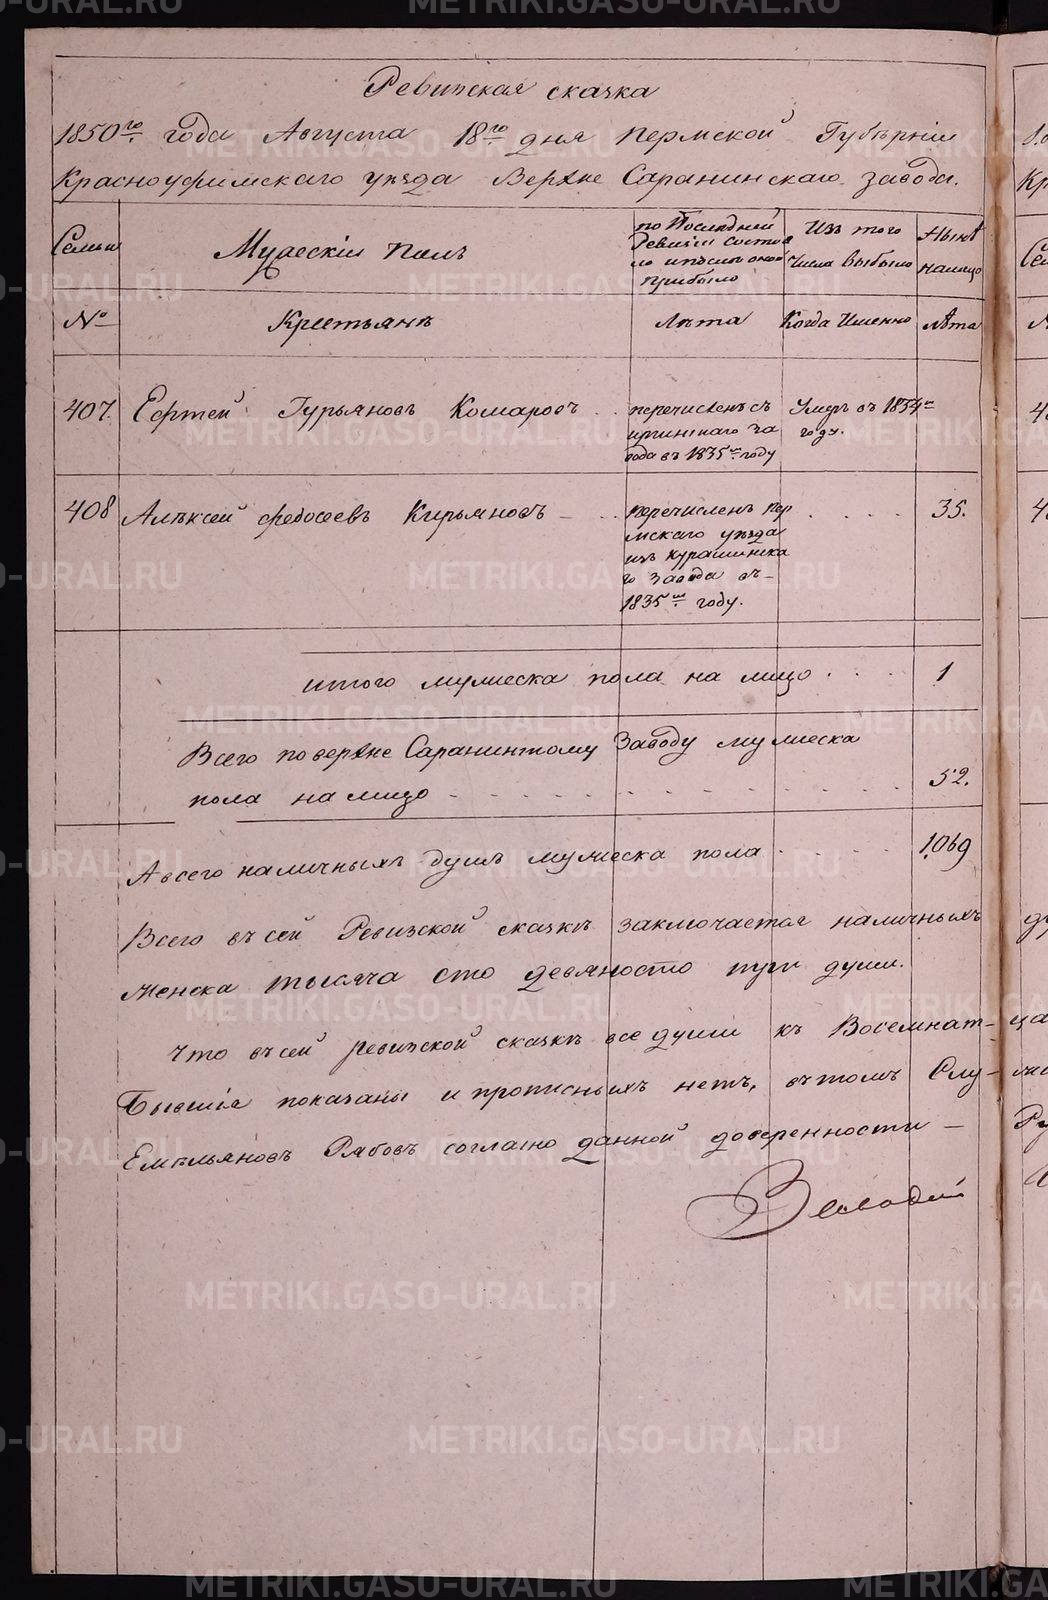 Ревизская сказка
1850го года Августа 18го дня Пермской Губернiи
Красноуфимскаго уезда Верхне Саранинскаго завода.
Семьи
Мужескiи Полъ
по Последней
Ревизiи состоя
ло и после оной
прибыло
Изъ того
числа выбыло
Ныне
налицо
№
Крестьяне
Лета
Когда Именно
Лета
407. Гурьяновъ Комаровъ
перечисленъ съ
иргинскаго за
вода въ 1835мъ году
Умеръ въ 1834м
году.
408 Алексей Федосеевъ Кирьяновъ
перечисленъ Пер
мскаго уезда
изъ Курашимска
го завода въ
1835мъ году.
35.
итого мужеска пола на лицо 1
Всего по верхне Саранинскому Заводу мужеска
пола на лицо 52.
А всего наличныхъ душъ мужеска пола 1,069
Всего въ сей Ревизской сказке заключается наличныхъ
женска тысяча сто девяносто душ.
Что въ сей ревизской сказке все души къ Восемнат-
Бывшiя показаны и прописныхъ нетъ, въ томъ Слу-
Емельяновъ Рябовъ согласно данной доверенности
METRIKI.GASO-URAL.RU